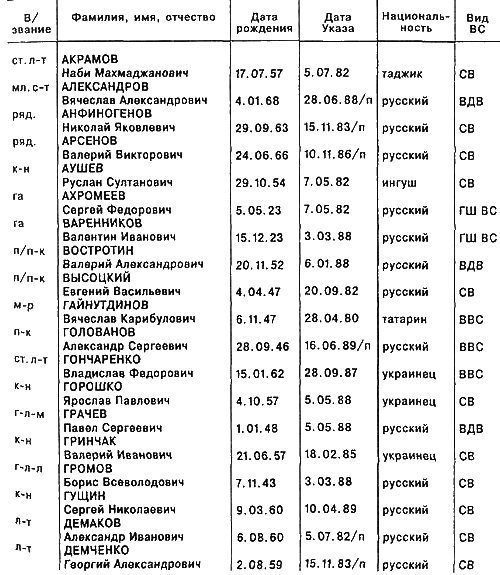 В/звание Фамилия, имя, отчество Дата рождения Дата Указа Националь-ность Вид ВС
ст.л-т АКРАМОВ
Наби Махмаджанович 17.07.57 5.07.82 таджик СВ
мл.с-т АЛЕКСАНДРОВ
Вячеслав Александрович 4.01.68 28.06.88/п русский ВДВ
ряд. АНФИНОГЕНОВ
Николай Яковлевич 29.09.63 15.11.83/п русский СВ
ряд. АРСЕНОВ
Валерий Викторович 24.06.66 10.11.86/п русский СВ
к-н АУШЕВ
Руслан Султанович 29.10.54 7.05.82 ингуш СВ
га АХРОМЕЕВ
Сергей Федорович 5.05.23 7.05.82 русский ГШ ВС
га ВАРЕННИКОВ
Валентин Иванович 15.12.23 3.03.88 русский ГШ ВС
п/п-к ВОСТРОТИН
Валерий Александрович 20.11.52 6.01.88 русский ВДВ
п/п-к ВЫСОЦКИЙ
Евгений Васильевич 4.04.47 20.09.82 русский СВ
м-р ГАЙНУТДИНОВ
Вячеслав Карибулович 6.11.47 28.04.80 татарин ВВС
п-к ГОЛОВАНОВ
Александр Сергеевич 28.09.46 16.06.89/п русский ВВС
ст.л-т ГОНЧАРЕНКО
Владислав Федорович 15.01.62 28.09.87 украинец ВВС
к-н ГОРОШКО
Ярослав Павлович 4.10.57 5.05.88 украинец СВ
г-л-м ГРАЧЕВ
Павел Сергеевич 1.01.48 5.05.88 русский ВДВ
к-н ГРИНЧАК
Валерий Иванович 21.06.57 18.02.85 украинец СВ
г-л-л ГРОМОВ
Борис Всеволодович 7.11.43 3.03.88 русский СВ
к-н ГУЩИН
Сергей Николаевич 9.03.60 10.04.89 русский СВ
л-т ДЕМАКОВ
Александр Иванович 6.08.60 5.07.82/п русский СВ
л-т ДЕМЧЕНКО
Георгий Александрович 2.08.59 15.11.83/п русский СВ